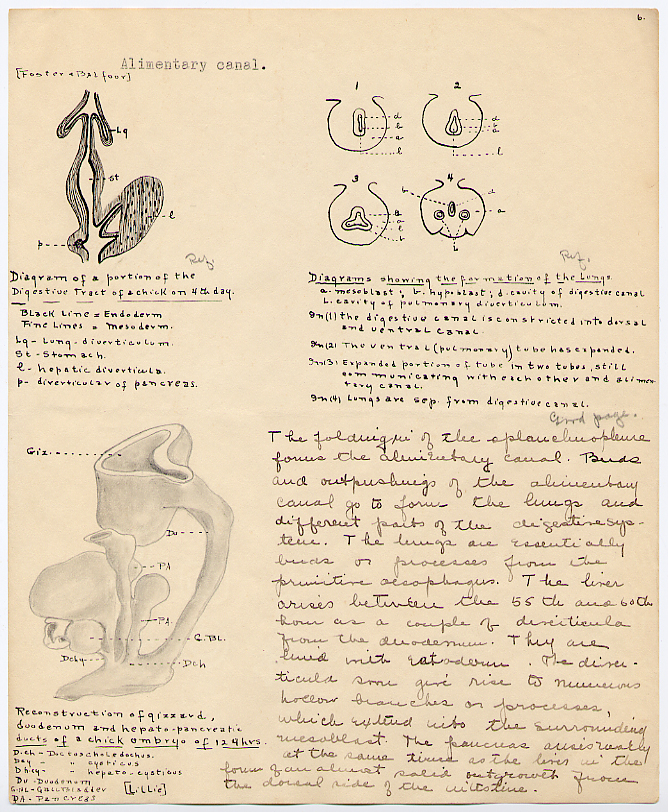 6.
Alimentary canal.
[Foster & Balfour]
Lg
st
l
p
Ref.
Diagram of a portion of the
Digestive Tract of a chick on 4th day.
Black Line = Endoderm
Fine Lines = Mesoderm.
Lg - Lung - diverticulum.
St - Stomach.
l - hepatic diverticula.
p - diverticular of pancreas.
1
d
b
a
l
2
d
b
a
l
3
a
d
l
b
4
b
d
a
l
Ref.
Diagrams showing the formation of the lungs
a. mesoblast; b. hypoblast; d. cavity of digestive canal
l. cavity of pulmonary diverticulum.
In (1) the digestive canal is constricted into dorsal
and ventral canal.
In (2) The ventral (pulmonary) tube has expanded.
In (3) Expanded portion of tube in two tubes, still
communicating with each other and alimen-
tary canal.
In (4) Lungs are sep. from digestive canal.
Good page.
Giz.
Du
PA
PA.
G.BL.
Dchy
Dch
Reconstruction of gizzard,
duodenum and hepato-pancreatic
ducts of a chick embryo of 124 hrs.
Dch - Ductus choledochus.
" " cysticus
" " hepato-cysticus
Du - Duodenum
G.BL - Gallbladder [Lillie]
PA - Pancreas
The folding in of the splanchnopleure
forms the alimentary canal. Buds
and outpushings of the alimentary
canal go to form the lungs and
different parts of the digestive sys-
tem. The lungs are essentially
buds or processes from the
primitive oesophagus. The liver
arises between the 55th and 60th
hour as a couple of diverticula
from the duodenum. They are
lined with Entoderm. The diver-
ticula soon give rise to numerous
hollow branches or processes,
which extend into the surrounding
mesoblast. The pancreas arises nearly
at the same time as the liver in the
form of an almost solid outgrowth from
the dorsal side of the intestine.